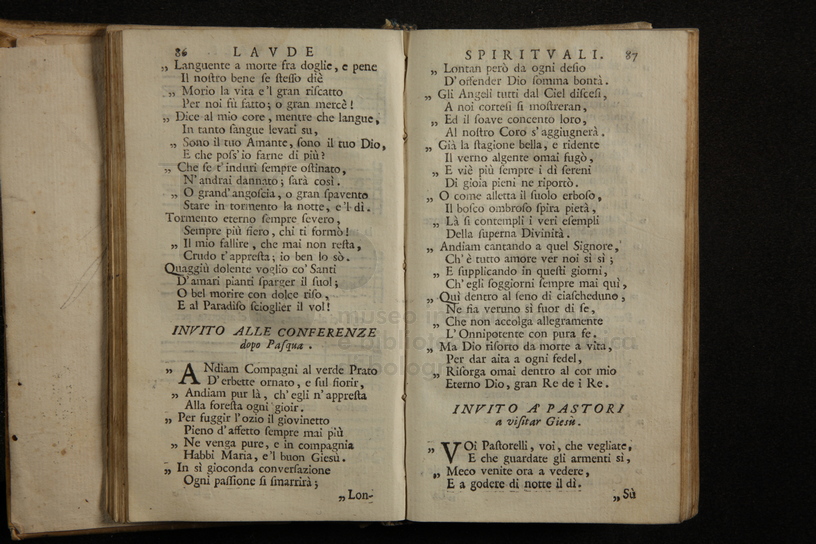 86 LAVDE
„ Languente a morte fra doglie, e pene
Il noſtro bene ſe ſteſſo diè
„ Morio la vita e'l gran riſcatto
Per noi fù fatto; o gran mercè!
„ Dice al mio core, mentre che langue,
In tanto ſangue levati su,
„ Sono il tuo Amante, ſono il tuo Dio,
E che poſs'io farne di più?
„ Che ſe t'induri ſempre oſtinato,
N'andrai dannato; ſarà così.
„ O grand'angoſcia, o gran ſpavento
Stare in tormento la notte, e'l dì.
Tormento eterno ſempre ſevero,
Sempre più fiero, chi ti formò!
„ Il mio fallire, che mai non reſta,
Crudo t'appreſta; io ben lo sò.
Quaggiù dolente voglio co' Santi
D'amari pianti ſparger il ſuol;
O bel morire con dolce riſo,
E al Paradiſo ſcioglier il vol!
INVITO ALLE CONFERENZE
dopo Paſqua.
„ ANdiam Compagni al verde Prato
D'erbette ornato, e ſul fiorir,
„ Andiam pur là, ch'egli n'appreſta
Alla foreſta ogni gioir.
„ Per fuggir l'ozio il giovinetto
Pieno d'affetto ſempre mai più
„ Ne venga pure, e in compagnia
Habbi Maria, e'l buon Giesù.
„ In sì gioconda converſazione
Ogni paſſione ſi ſmarrirà;
„ Lon-
SPIRITVALI. 87
„ Lontan però da ogni deſio
D'offender Dio ſomma bontà.
„ Gli Angeli tutti dal Ciel diſceſi,
A noi corteſi ſi moſtreran,
„ Ed il ſoave concento loro,
Al noſtro Coro s'aggiugnerà.
„ Già la ſtagione bella, e ridente
Il verno algente omai fugò,
„ E viè più ſempre i dì ſereni
Di gioia pieni ne riportò.
„ O come alletta il ſuolo erboſo,
Il boſco ombroſo ſpira pietà,
„ Là ſi contempli i veri eſempli
Della ſuperna Divinità.
„ Andiam cantando a quel Signore,
Ch'è tutto amore ver noi sì sì;
„ E ſupplicando in queſti giorni,
Ch'egli ſoggiorni ſempre mai quì,
„ Quì dentro al ſeno di ciaſcheduno,
Ne ſia veruno sì fuor di ſe,
„ Che non accolga allegramente
L'Onnipotente con pura fe.
„ Ma Dio riſorto da morte a vita,
Per dar aita a ogni fedel,
„ Riſorga omai dentro al cor mio
Eterno Dio, gran Re de i Re.
INVITO A' PASTORI
a viſitar Giesù.
„ VOi Paſtorelli, voi, che vegliate,
E che guardate gli armenti sì,
„ Meco venite ora a vedere,
E a godere di notte il dì.
„ Sù
museo in
bibliot
ca
di bolog